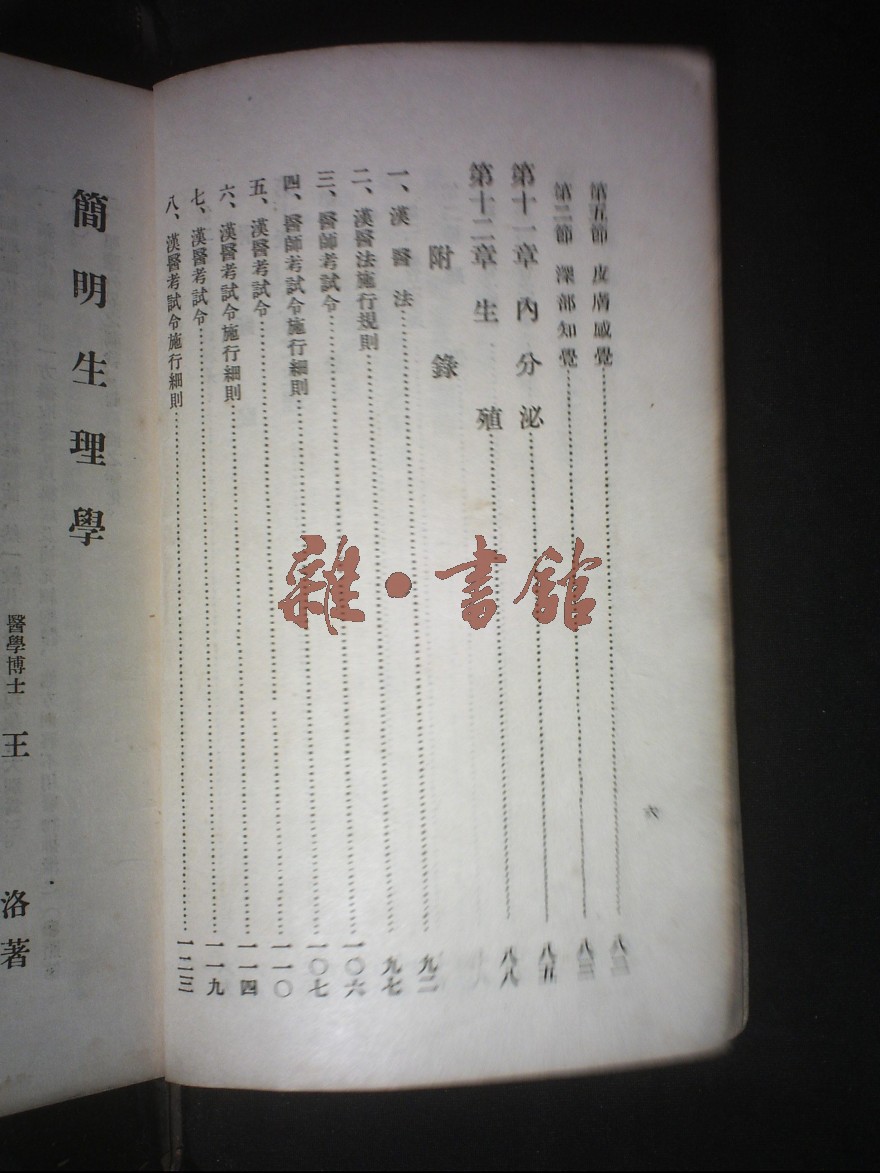 第五節 皮膚感覺
第二節 深部知覺
第十一章 內分泌……八五
第十二章 生殖……八八
附錄
一、漢醫法……九二
二、漢醫法施行規則……九七
三、醫師考試令……一〇六
四、醫師考試令施行細則……一〇七
五、漢醫考試令……一一〇
六、漢醫考試令施行細則……一一四
七、漢醫考試令……一一九
八、漢醫考試令施行細則……一二三
簡明生理學
醫學博士 王洛著
雜・書館